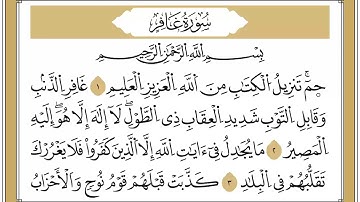 سُورَةُ غَافِرٍ
بِسْمِ اللَّهِ الرَّحْمَٰنِ الرَّحِيمِ
حمٓ تَنزِيلُ الْكِتَابِ مِنَ اللَّهِ الْعَزِيزِ الْعَلِيمِ ١ غَافِرِ الذَّنۢبِ
وَقَابِلِ التَّوْبِ شَدِيدِ الْعِقَابِ ذِي الطَّوْلِ لَا إِلَٰهَ إِلَّا هُوَ إِلَيْهِ
الْمَصِيرُ ٢ مَا يُجَٰدِلُ فِي ءَايَٰتِ اللَّهِ إِلَّا الَّذِينَ كَفَرُوا فَلَا يَغْرُرْكَ
تَقَلُّبُهُمْ فِي الْبِلَٰدِ ٣ كَذَّبَتْ قَبْلَهُمْ قَوْمُ نُوحٍ وَالْأَحْزَابُ